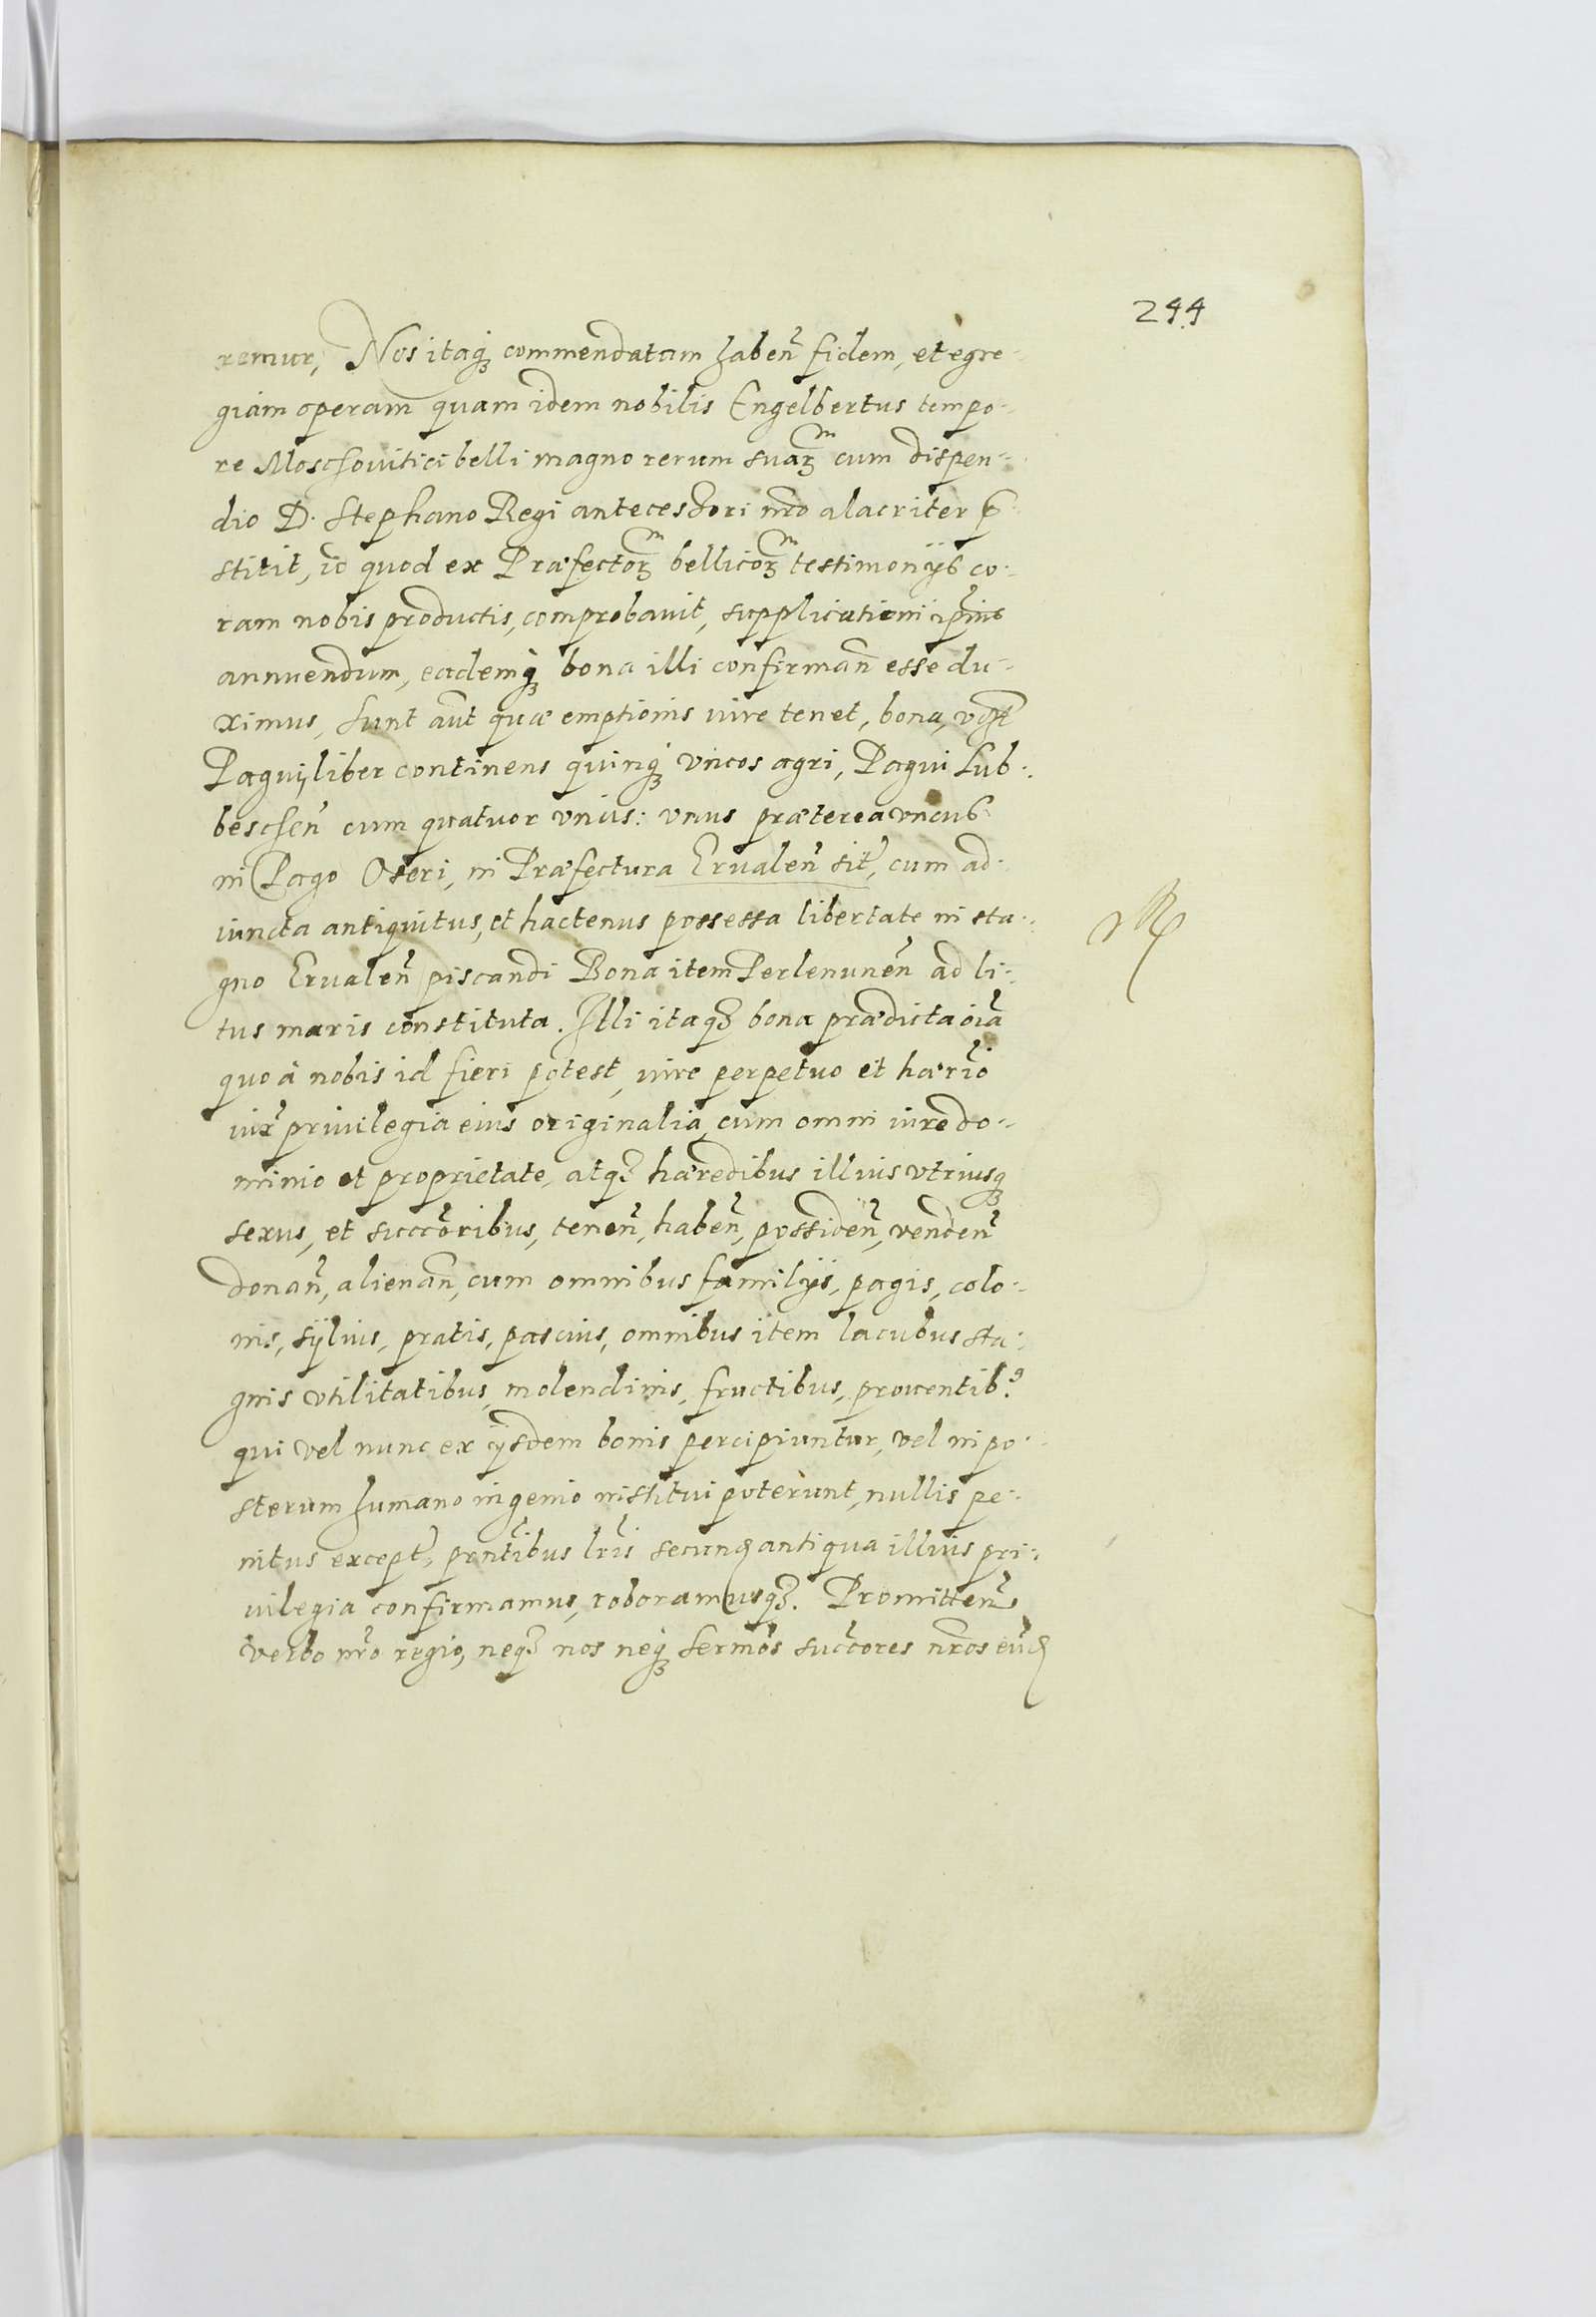 244
remur, Nos itaq₃ commendatam haben̄ fidem, et egre-
giam operam quam idem nobilis Engelbertus tempo-
re Moschovitici belli magno rerum suaꝝ cum dispen-
dio D. Stephano Regi antecessori nr̄o alacriter p̄
stitit, id quod ex Præfectoꝝ bellicoꝝ testimonijs co-
ram nobis productis, comprobavit, supplicationi ip̄ius
annuendum, eademq₃ bona illi confirman̄ esse du-
ximus, sunt aūt quæ emptionis iure tenet, bona,
Paguij liber continens quinq₃ vncos agri, Pagui Lub-
beschen̄ cum quatuor vncis: vnus præterea vncus
in Pago Oseri, in Præfectura Ervalen̄ sit̄, cum ad-
iuncta antiquitus, et hactenus possessa libertate in sta-
gno Ervalen̄ piscandi Bona item Perlenunen̄ ad li-
tus maris constituta. Illi itaq₃ bona prædicta oīa
quo à nobis id fieri potest, iure perpetuo et hær̄io
iux̄ privilegia eius originalia, cum omni iure do-
minio et proprietate, atq₃ hæredibus illius vtriusq₃
sexus, et succōribus, tenen̄, haben̄, possiden̄, venden̄
donan̄, alienan̄, cum omnibus familijs, pagis, colo-
nis, sylvis, pratis, pascuis, omnibus item lacubus sta-
gnis vtilitatibus, molendinis, fructibus, proventib⁹
qui vel nunc ex ijsdem bonis percipiuntur, vel in po-
sterum humano ingenio institui poterunt, nullis pe-
nitus except̄, pn̄tibus lr̄is secund antiqua illius pri-
vilegia confirmamus, roboramusq₃. Promitten̄
verbo nr̄o regio, neq₃ nos neq₃ serm̄os succ̄ores nr̄os eūd